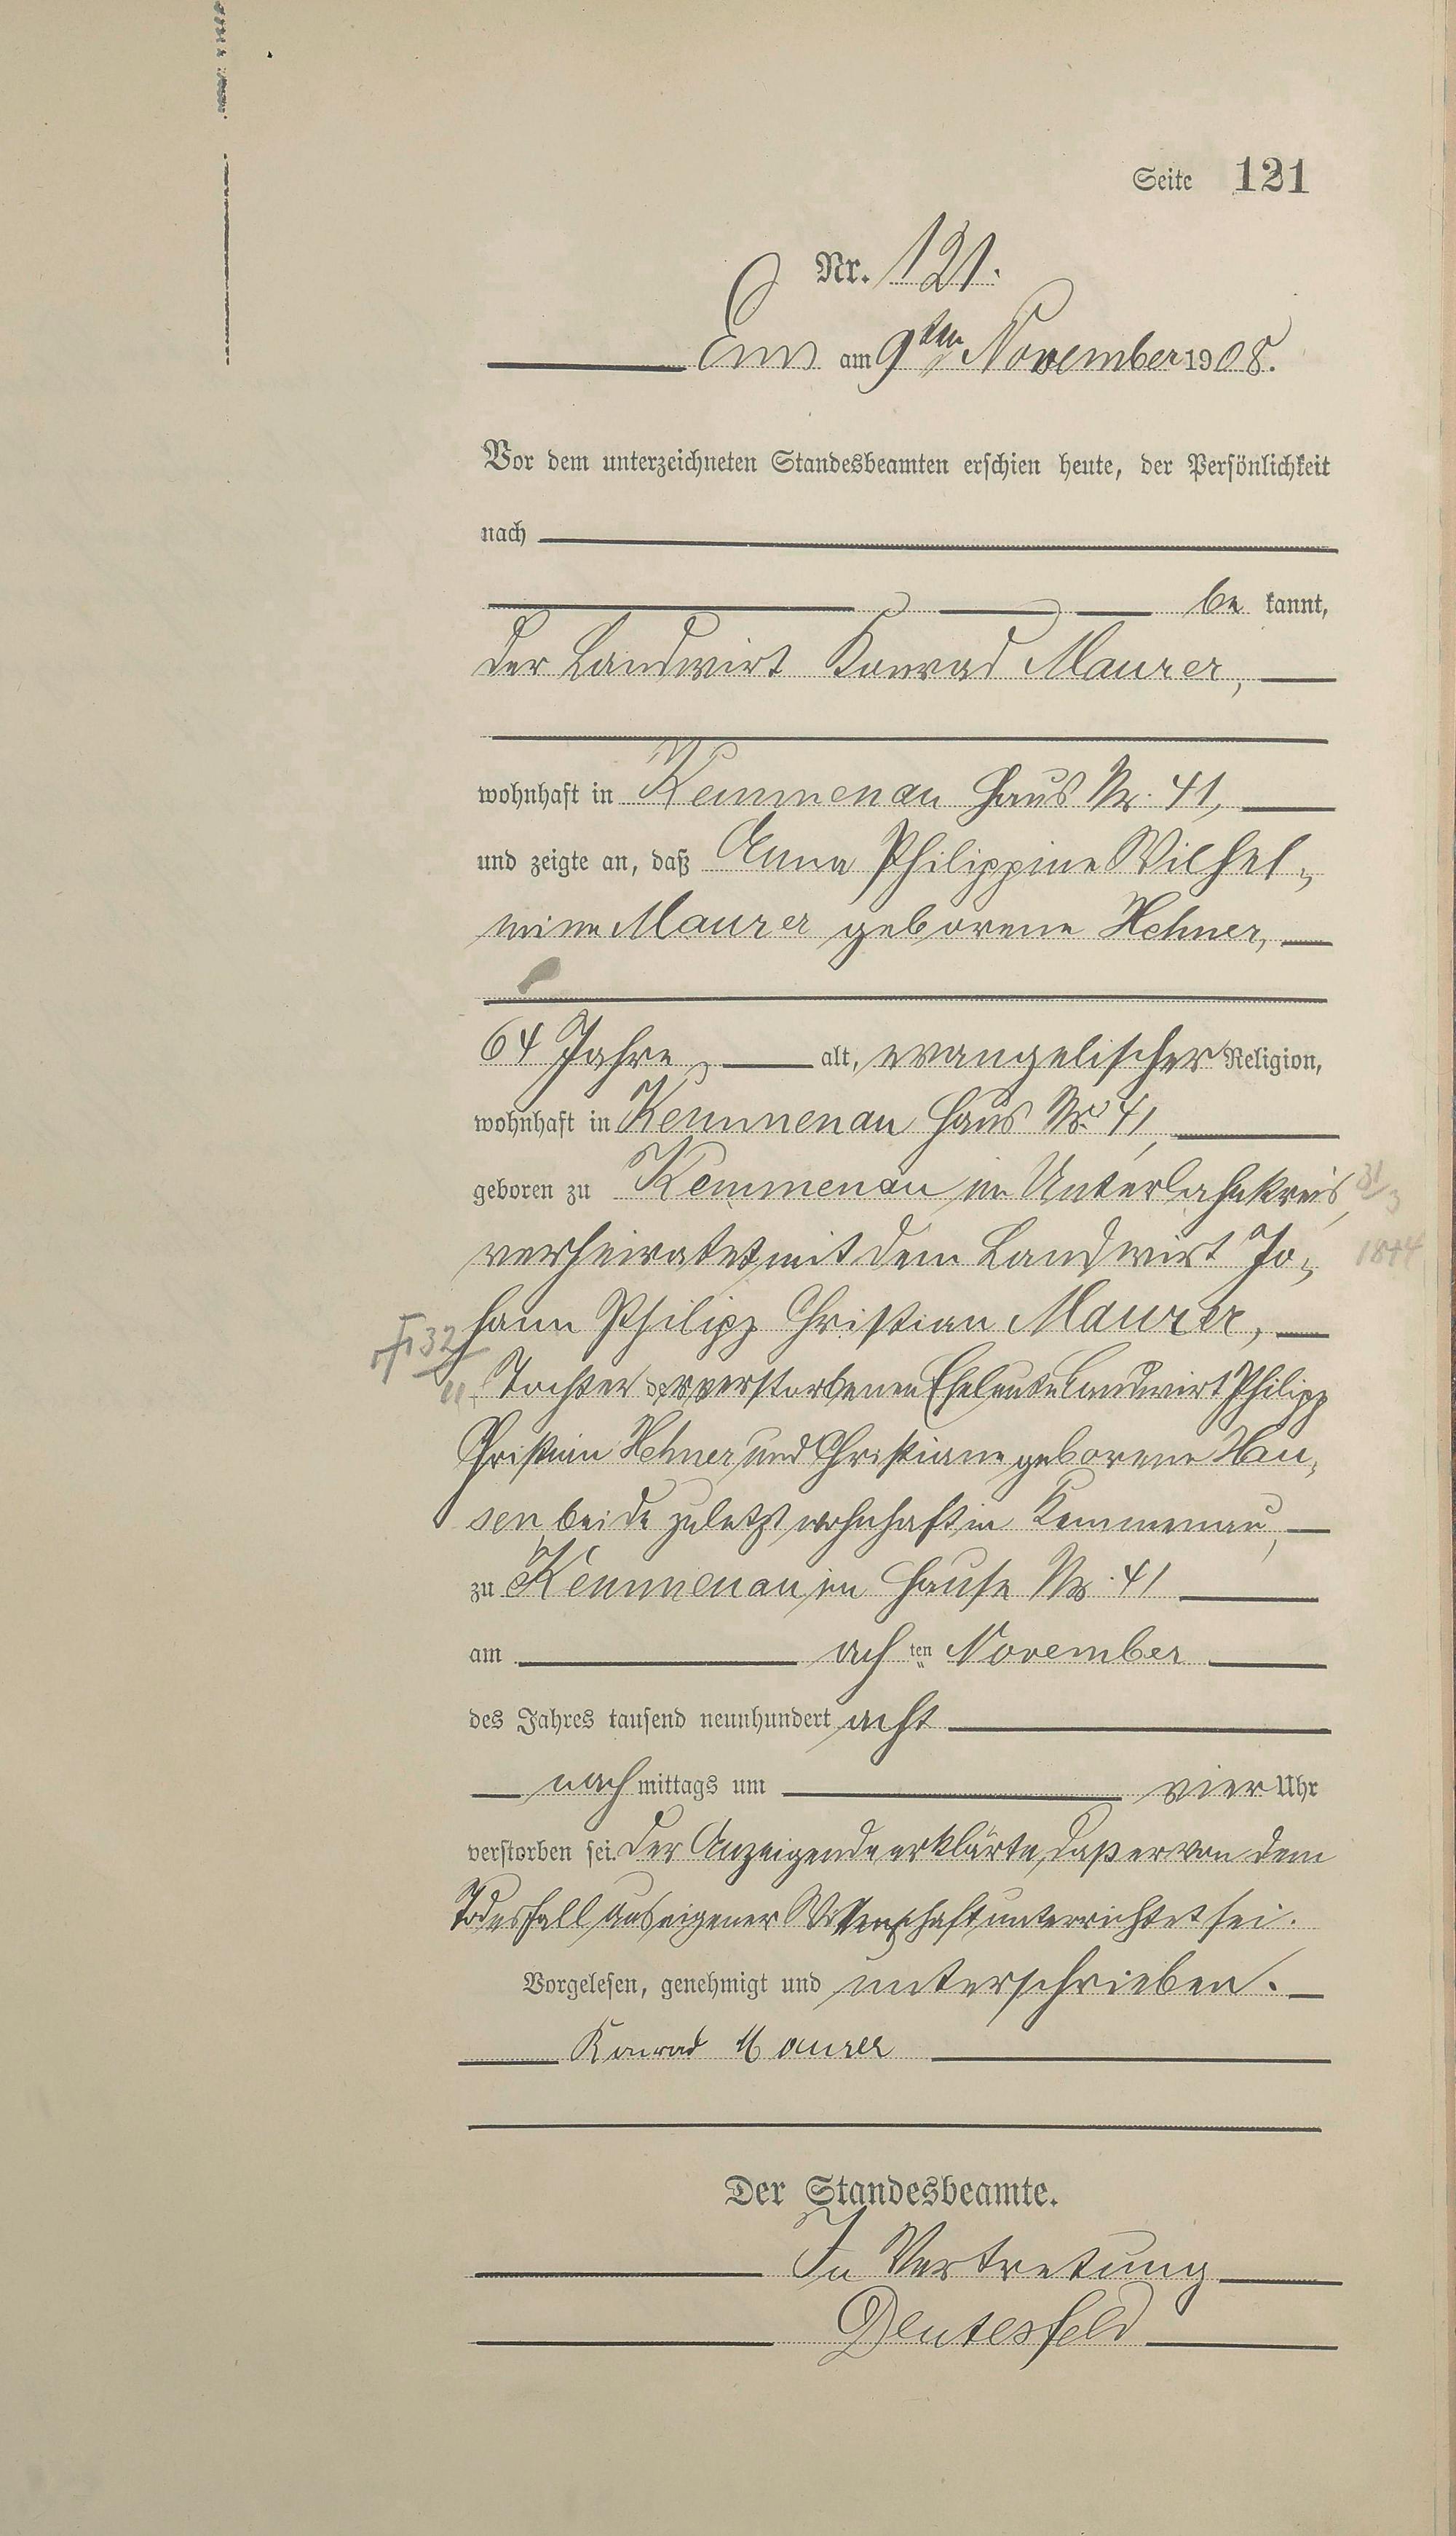 Seite 121
Nr. 121.
Ems am 9ten November 1908.
Vor dem unterzeichneten Standesbeamten erschien heute, der Persönlichkeit
nach
be kannt,
der Landwirt Konrad Maurer,
wohnhaft in Kemmenau Haus Nr. 41,
und zeigte an, daß Anna Philippine Wilhel-
mine Maurer geborene Hehner,
64 Jahre alt, evangelischer Religion,
wohnhaft in Kemmenau Haus Nr. 41,
geboren zu Kemmenau im Unterlahnkreis, 31/3
verheiratet mit dem Landwirt Jo- 1844
hann Philipp Christian Maurer,
Tochter der verstorbenen Eheleute Landwirt Philipp
Christian Hehner und Christiane geborene
sen, beide zuletzt wohnhaft in Kemmenau,
zu Kemmenau im Hause Nr. 41
am achten November
des Jahres tausend neunhundert acht
nachmittags um vier Uhr
verstorben sei. Der Anzeigende erklärte, daß er von dem
Todesfall aus eigener Wissenschaft unterrichtet sei.
Vorgelesen, genehmigt und unterschrieben.
Konrad Maurer
Der Standesbeamte.
In Vertretung